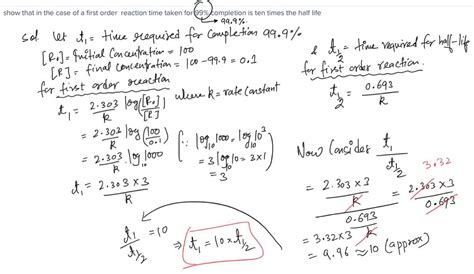 show that in the case of a first order reaction time taken for 99% completion is ten times the half life
99.9%
Sol. let t₁ = time required for completion 99.9%
[R₀] = Initial Concentration = 100
[R] = final concentration = 100-99.9 = 0.1
for first order reaction
t₁ = 2.303/k log [R₀]/[R] where k = rate constant
= 2.302/k log (100/0.1)
= 2.303/k log₁₀ 1000
t₁ = 2.303 × 3/k
[∵ log₁₀ 1000 = log₁₀ 10³
= 3 log₁₀ 10 = 3×1
= 3
t₁/t½ = 10 ⇒ t₁ = 10 × t½
& t½ = time required for half-life
for first order reaction.
t½ = 0.693/k
Now Consider t₁/t½
= 2.303 × 3/k / 0.693/k = 2.303 × 3/0.693
3.32
= 3.32 × 3
= 9.96 ≈ 10 (approx)